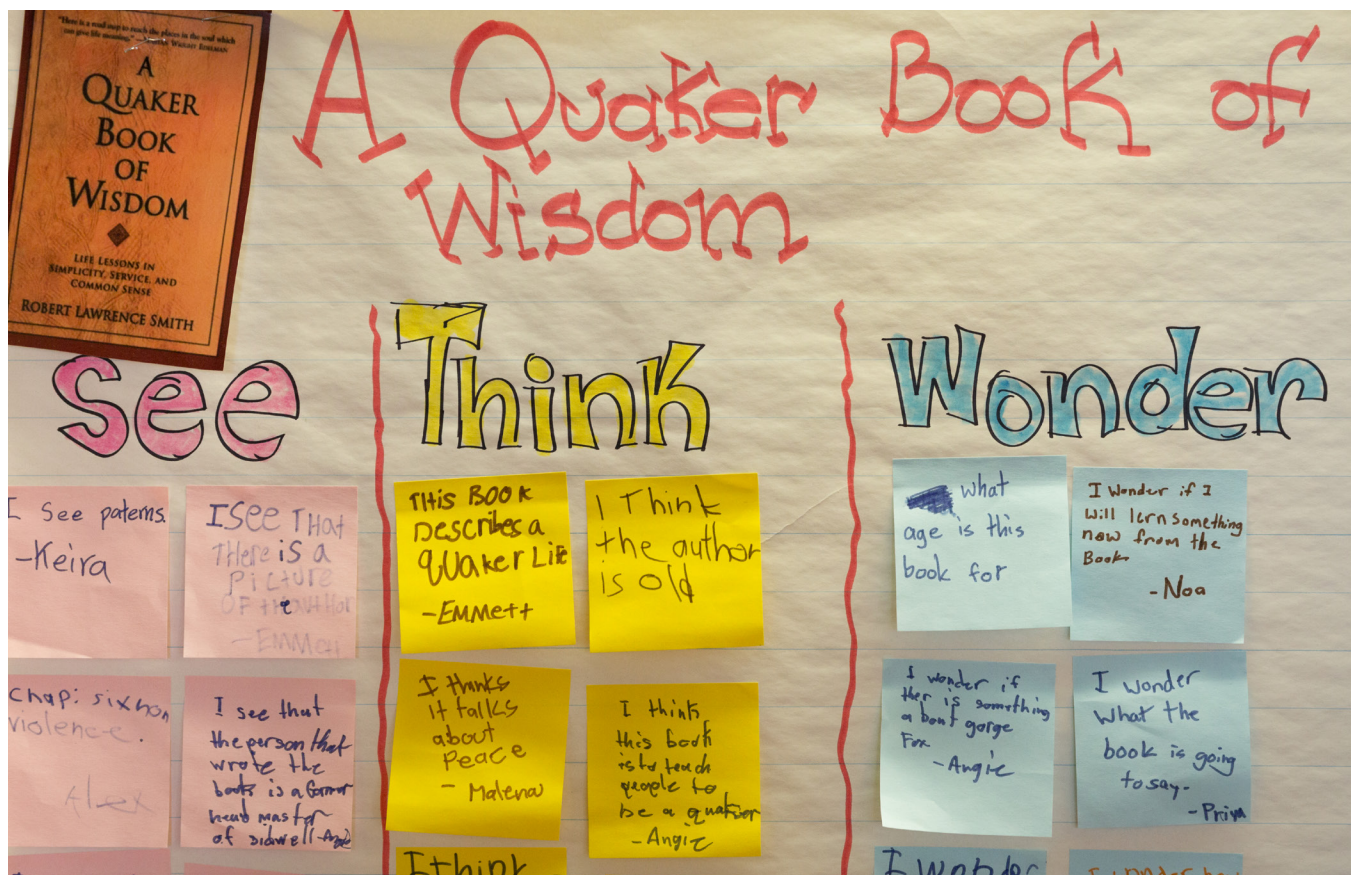 "Here is a road map to reach the places in the soul which
can give life meaning." — Marian Wright Edelman
A
QUAKER
BOOK
OF
WISDOM
LIFE LESSONS IN
SIMPLICITY, SERVICE, AND
COMMON SENSE
ROBERT LAWRENCE SMITH
A Quaker Book of
Wisdom
See
Think
Wonder
I See paterns.
-Keira
I SEE THat
THere iS a
PICTURE
OF the authOr
-EMMett
Chap: six non
violence.
Alex
I see that
the person that
wrote the
book is a former
head master
of sidwell -Angie
THis BOOK
Describes a
QUaker LiFe
-EMMett
I Think
the author
is old
I thinks
it talks
about
Peace
- Malena
I think
this book
is to teach
people to
be a quaker
-Angie
I think
what
age is this
book for
I Wonder if I
will lern something
new from the
Book.
-Noa
I wonder if
ther is something
a bout gorge
Fox
-Angie
I wonder
what the
book is going
to say.
-Priya
I wonder
I wonder